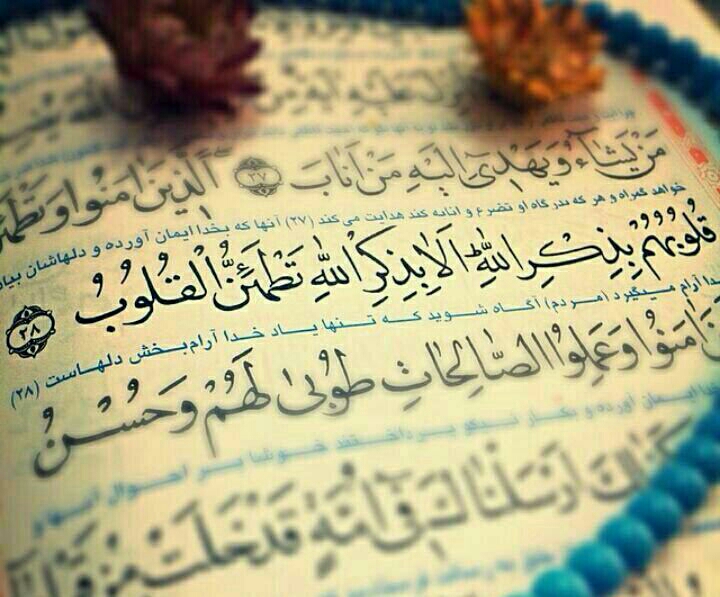 عَلَيْهِ ايَةٌ مِنْ
مَنْ يَشَاءُ وَيَهْدِى اِلَيْهِ مَنْ اَنَابَ ﴿۲۷﴾ اَلَّذِينَ امَنُوا وَتَطْمَئِ
خواهد گمراه و هر که بدرگاه او تضرع و انابه کند هدایت می‌کند (۲۷) آنها که بخدا ایمان آورده و دلهاشان بیاد
قُلُوبُهُمْ بِذِكْرِ اللّٰهِ اَلَا بِذِكْرِ اللّٰهِ تَطْمَئِنُّ الْقُلُوبُ ﴿۲۸﴾
خدا آرام میگیرد (مردم) آگاه شوید که تنها یاد خدا آرام‌بخش دلهاست (۲۸)
امَنُوا وَعَمِلُوا الصَّالِحَاتِ طُوبىٰ لَهُمْ وَحُسْنُ
خدا ایمان آورده و بکار نیکو پرداختند خوشا بر احوال آنها و
اَرْسَلْنَاكَ فِى اُمَّةٍ قَدْ خَلَتْ مِنْ